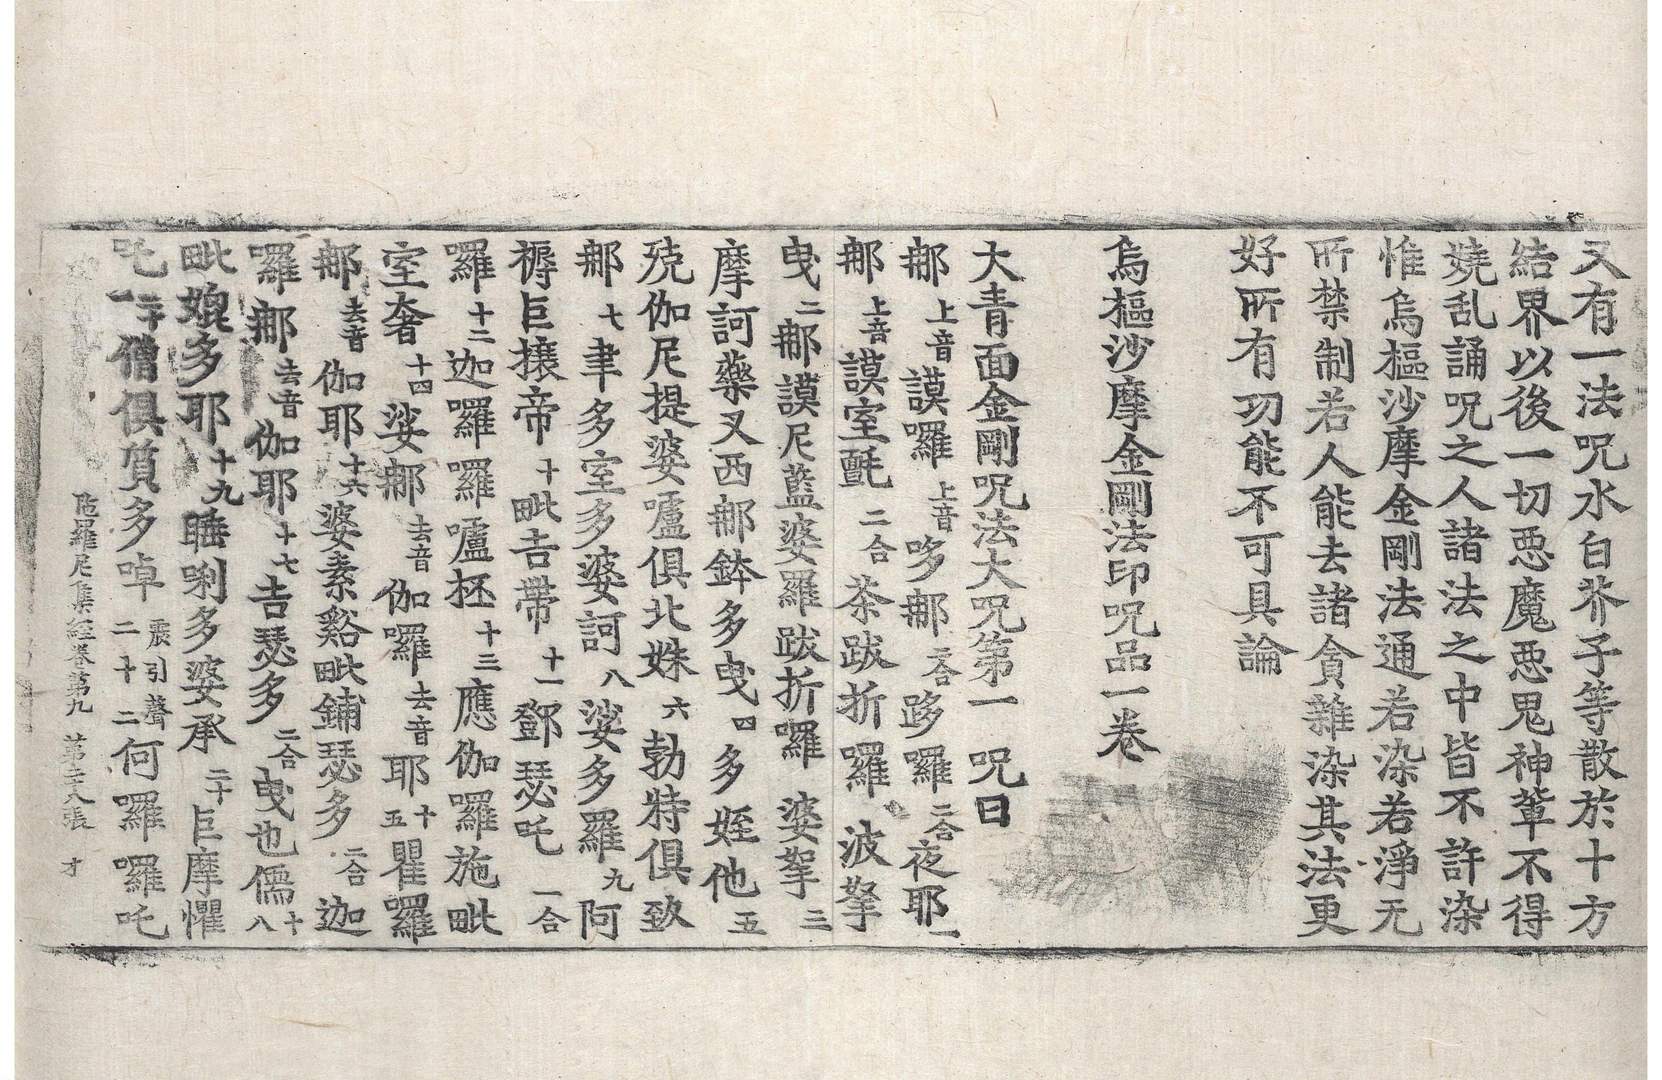 又有一法呪水白芥子等散於十方
結界以後一切悪魔悪鬼神輩不得
嬈乱誦呪之人諸法之中皆不許染
惟烏樞沙摩金剛法通若染若淨无
所禁制若人能去諸貪雜染其法更
好所有功能不可具論
烏樞沙摩金剛法印呪品一卷
大青面金剛呪法大呪第一 呪曰
那上音謨羅上音哆那二合跢囉二合夜耶一
那上音謨室氈二合茶跋折囉波拏
曳二那謨尼藍婆羅跋折囉婆拏三
摩訶藥叉西那鉢多曳四多姪他五
殑伽尼提婆嚧俱北姝六勃特俱致
那七聿多室多婆訶八娑多羅九阿
褥巨攘帝十毗吉帶十一鄧瑟吒一合
羅十二迦囉羅嚧柸十三應伽囉施毗
室奢十四娑那去音伽囉去音耶十五瞿羅
那去音伽耶十六婆素谿毗鋪瑟多二合迦
囉那去音伽耶十七吉瑟多二合曳也儒十八
毗媲多耶十九睡唎多婆承二十巨摩懼
吒二十一僧俱質多啅震引聲二十二何羅囉吒
陁羅尼集經卷第九 第二十八張 才